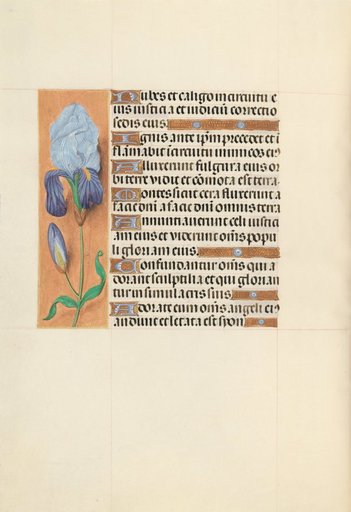 Nubes et caligo in circuitu e
ius iusticia et iudiciu correctio
sedis eius
Ignis ante ipm precedet et i
flamabit i circuitu inimicos ei9
Alluxerunt fulgura eius or
bi terre vidit et comota est terra
Montes sicut cera fluxerunt a
facie dni a facie dni omnis terra
Annuntiauerunt celi iustici
am eius et viderunt oms popu
li gloriam eius
Confundantur oms qui a
dorant sculptilia et qui glorian
tur in simulacris suis
Adorate eum oms angeli ei9
audiuit et letata est syon